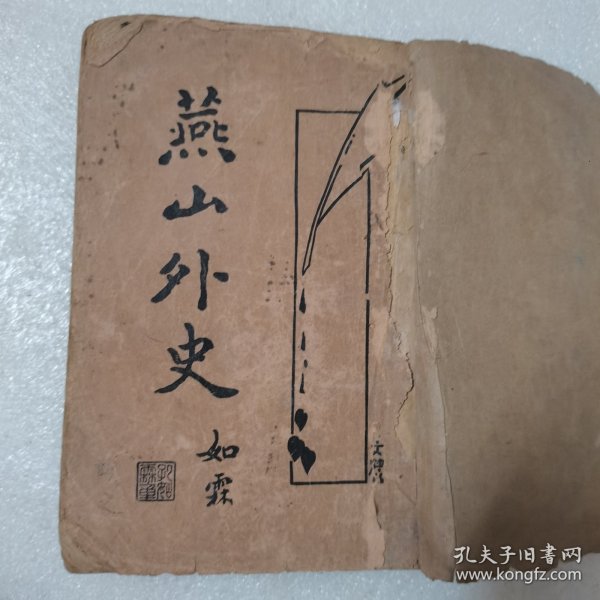 燕山外史
如霖
孔夫子旧書网
www.kongfz.com